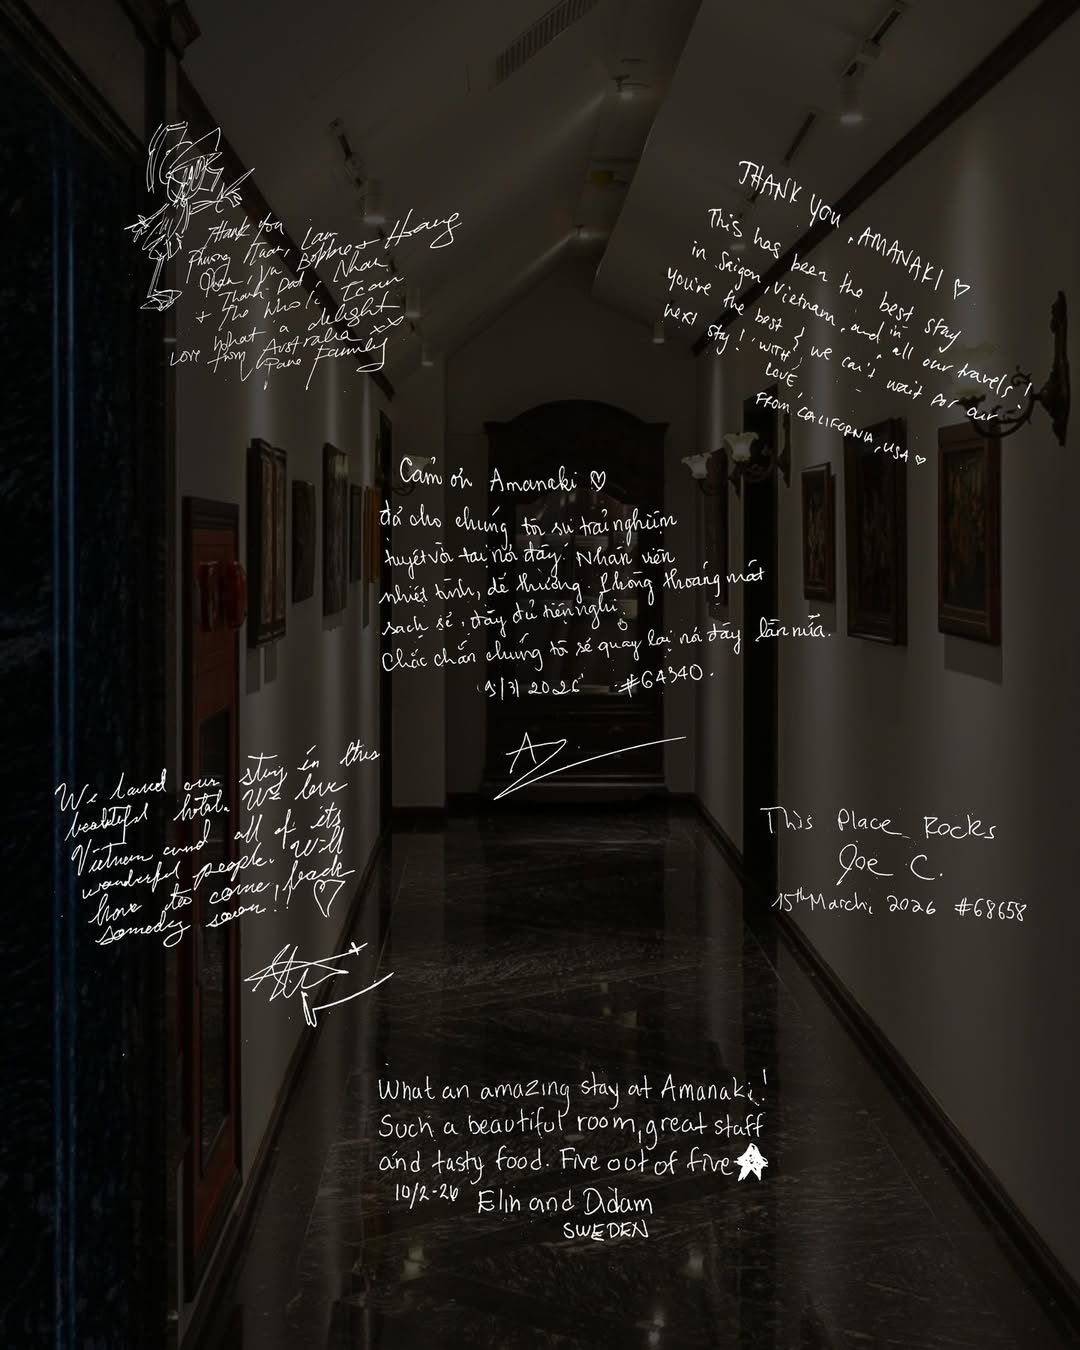 Thank you Lam
Phuong, Tuan, + Hoang
Thanh Dat, Nhan
+ The whole Team
What a delight
Love from Australia xx
Family
THANK YOU, AMANAKI ♡
This has been the best stay
in Saigon, Vietnam, and in all our travels!
You're the best & we can't wait for our
next stay! WITH
LOVE,
FROM CALIFORNIA, USA ♡
Cảm ơn Amanaki ♡
đã cho chúng tôi sự trải nghiệm
tuyệt vời tại nơi đây. Nhân viên
nhiệt tình, dễ thương. Phòng thoáng mát
sạch sẽ, đầy đủ tiện nghi.
Chắc chắn chúng tôi sẽ quay lại nơi đây lần nữa.
9/3/2026 #64340.
We loved our stay in this
beautiful hotel. We love
Vietnam and all of its
wonderful people. Will
have to come back
someday soon!! ♡
This Place Rocks
Joe C.
15th March, 2026 #68658
What an amazing stay at Amanaki!
Such a beautiful room, great staff
and tasty food. Five out of five ★
10/2-26 Elin and Didam
SWEDEN